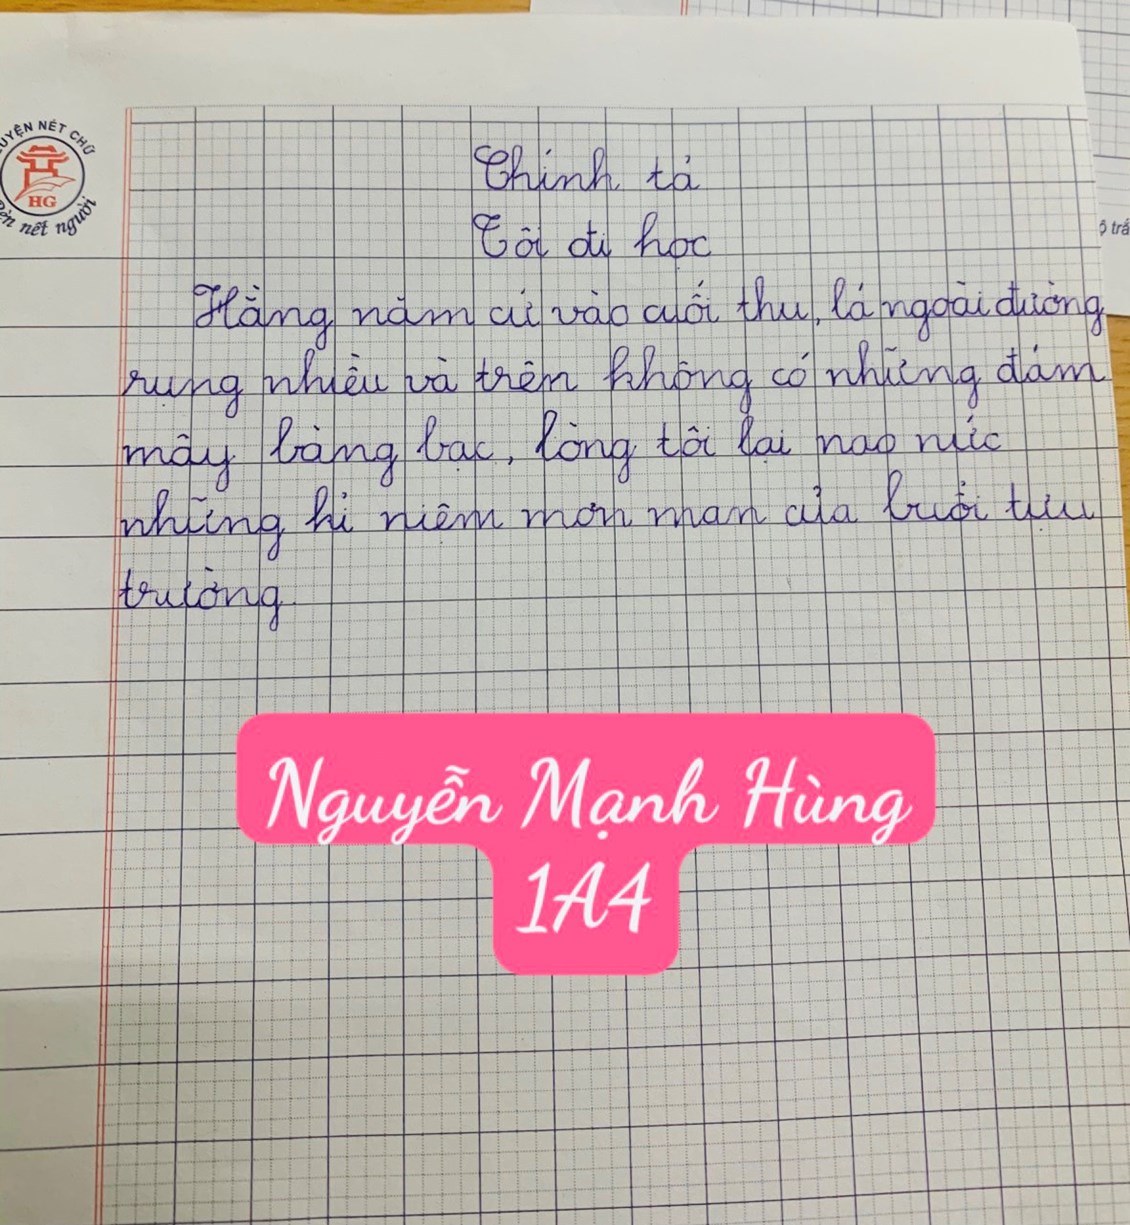 UYỆN NÉT CHỮ
HG
Rèn nết người
Chính tả
Tôi đi học
Hằng năm cứ vào cuối thu, lá ngoài đường
rụng nhiều và trên không có những đám
mây bàng bạc, lòng tôi lại nao nức
những kỉ niệm mơn man của buổi tựu
trường.
Nguyễn Mạnh Hùng
1A4